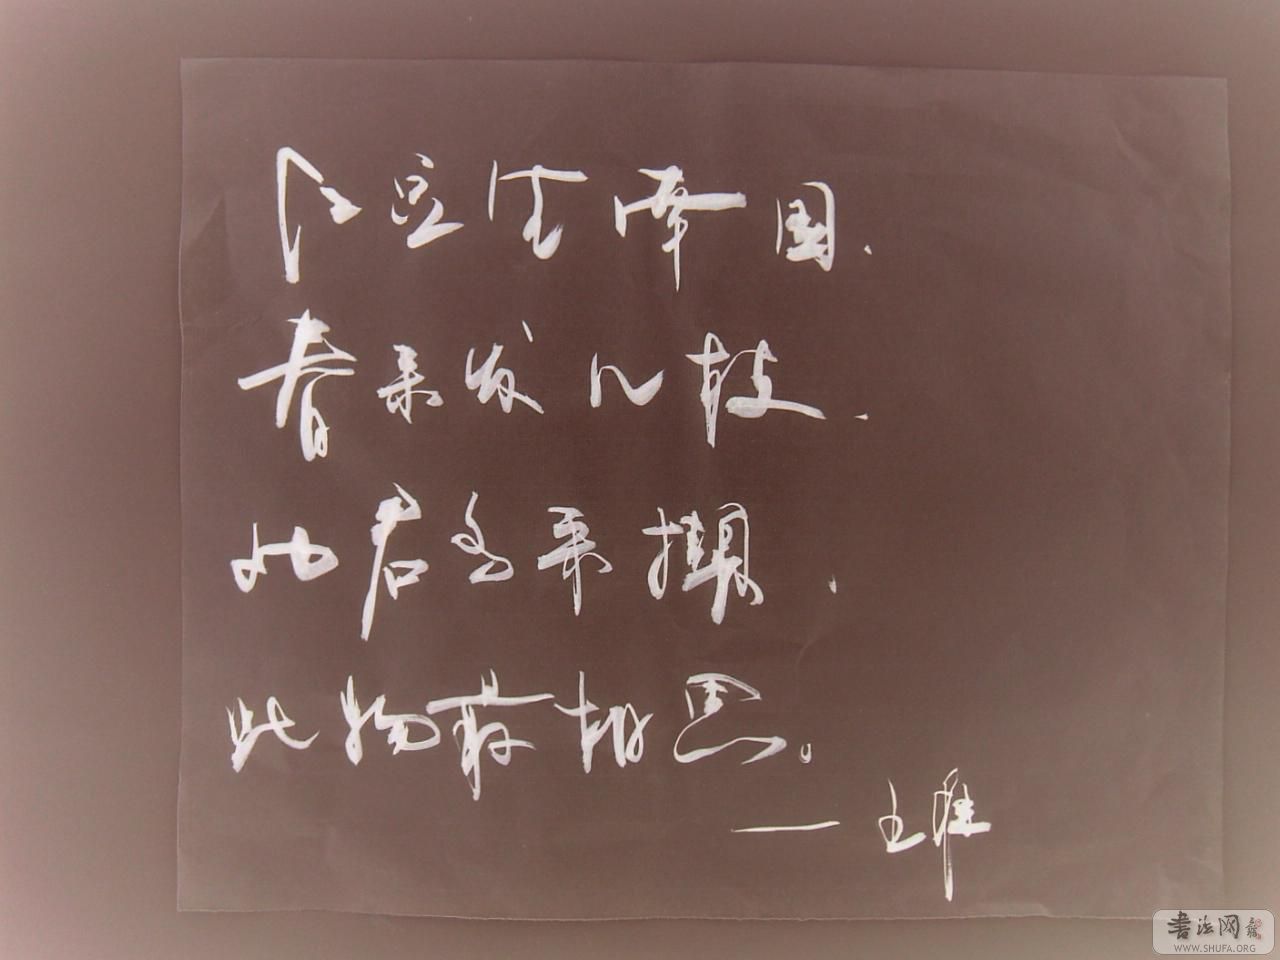 红豆生南国，
春来发几枝，
劝君多采撷，
此物最相思。
——王维
書法网
WWW.SHUFA.ORG